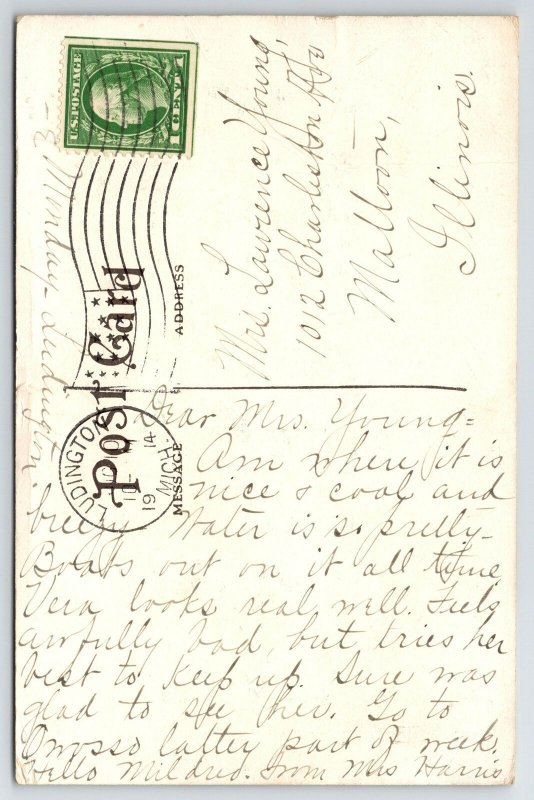 U.S. POSTAGE
1 CENT 1
Post Card
ADDRESS
MESSAGE
LUDINGTON
MICH.
10-
19 14
Mrs. Lawrence Young,
1012 Charleston Ave
Mattoon,
Illinois.
Monday - Ludington
Dear Mrs. Young=
Am where it is
nice & cool and
breezy Water is so pretty-
Boats out on it all time
Vera looks real well. Feels
awfully bad, but tries her
best to keep up. Sure was
glad to see her. Go to
Owosso latter part of week.
Hello Mildred. from Mrs Harris